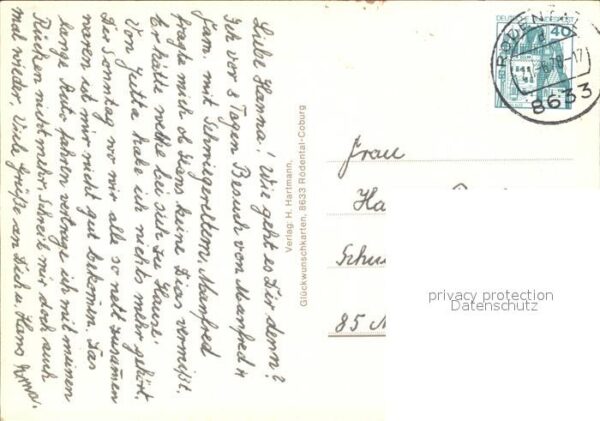 Liebe Hanna! Wie geht es Dir denn?
Ich vor 8 Tagen Besuch von Manfred u
Fam. mit Schwiegereltern, Manfred
fragte mich ob Hans keine Dias vermißt.
Er hätte welche bei sich zu Hause.
Von Jutta habe ich nichts mehr gehört.
Der Sonntag wo wir alle so nett zusammen
waren, ist mir nicht gut bekommen. Das
lange Auto fahren vertrage ich mit meinem
Rücken nicht mehr. Schreib mir doch auch
mal wieder. Viele Grüße an Dich u. Hans
Verlag: H. Hartmann,
Glückwunschkarten, 8633 Rödental-Coburg
DEUTSCHE BUNDESPOST
40
RÖDENTAL
8633
Frau
85
privacy protection
Datenschutz